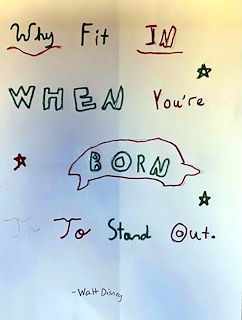 Why Fit IN
WHEN You're
BORN
To To Stand Out.
-Walt Disney